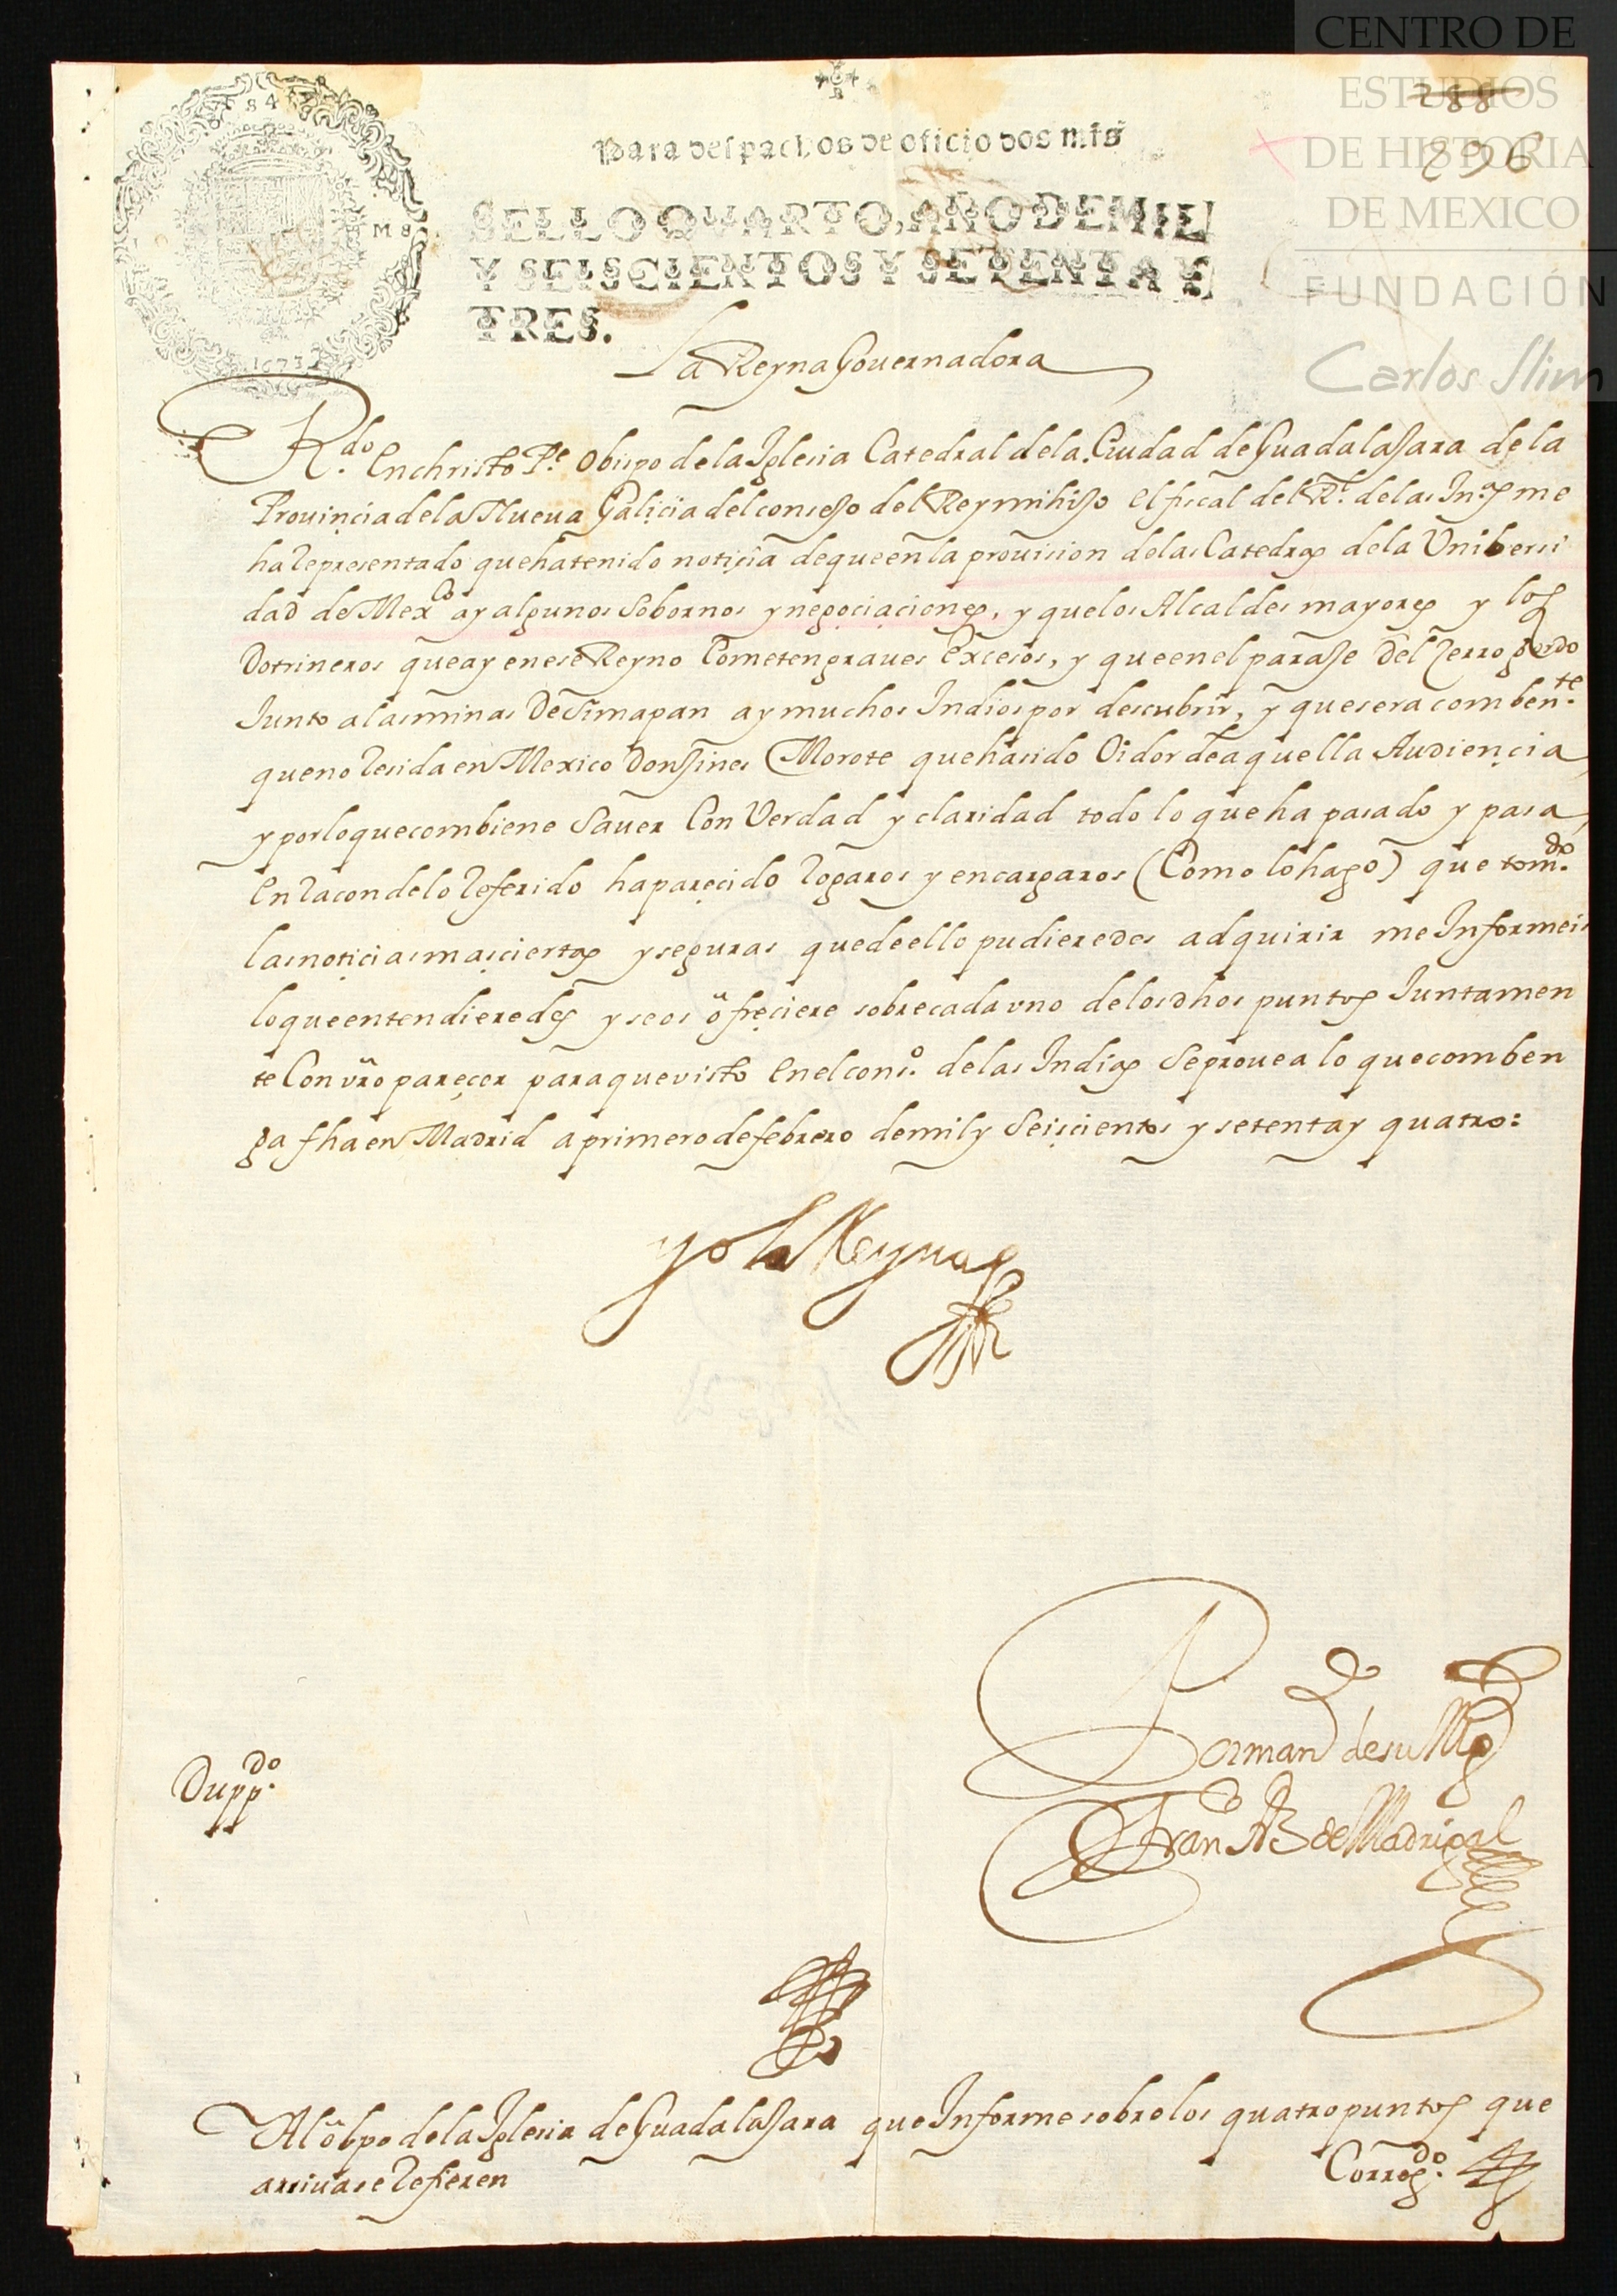 CENTRO DE
ESTUDIOS
DE HISTORIA
DE MEXICO
FUNDACIÓN
Carlos Slim
288
896
Para despachos de oficio dos mrs
SELLO QVARTO, AÑO DE MIL
Y SEISCIENTOS Y SETENTA Y
TRES.
1673
La Reyna Gouernadora
R.do en christo P.e obispo de la Iglesia Catedral de la Ciudad de Guadalajara de la
Prouincia de la Nueua Galicia del consejo del Rey mi hijo el fiscal del R.l de las In.as me
ha representado que ha tenido noticia de que en la prouision de las Catedras de la Uniberssi
dad de Mexco ay algunos Sobornos y negociaciones, y que los Alcaldes mayores y los
Dotrineros que ay en ese Reyno Cometen graues excesos, y que en el paraje del Zerro gordo
Junto a las minas de Simapan ay muchos Indios por descubrir, y que sera comben.te
que no resida en Mexico Don Jines Morote que ha sido Oidor de aquella Audiencia,
y por lo que combiene Sauer Con Verdad y claridad todo lo que ha pasado y pasa,
en racon de lo referido ha parecido rogaros y encargaros (Como lo hago) que tom.do
las noticias mas ciertas y seguras que de ello pudieredes adquirir me Informeis
lo que entendieredes y se os ofreciere sobre cada vno de los dhos puntos Juntamen
te Con vro parecer para que visto en el cons.o de las Indias Se prouea lo que comben
ga fha en Madrid a primero de febrero de mil y Seiscientos y setenta y quatro:
yo la Reyna
Por man do de su Mgd
Franco Frz de Madrigal
Dupp.do
Al obpo de la Iglesia de Guadalajara que Informe sobre los quatro puntos que
arriua se refieren
Correg.do